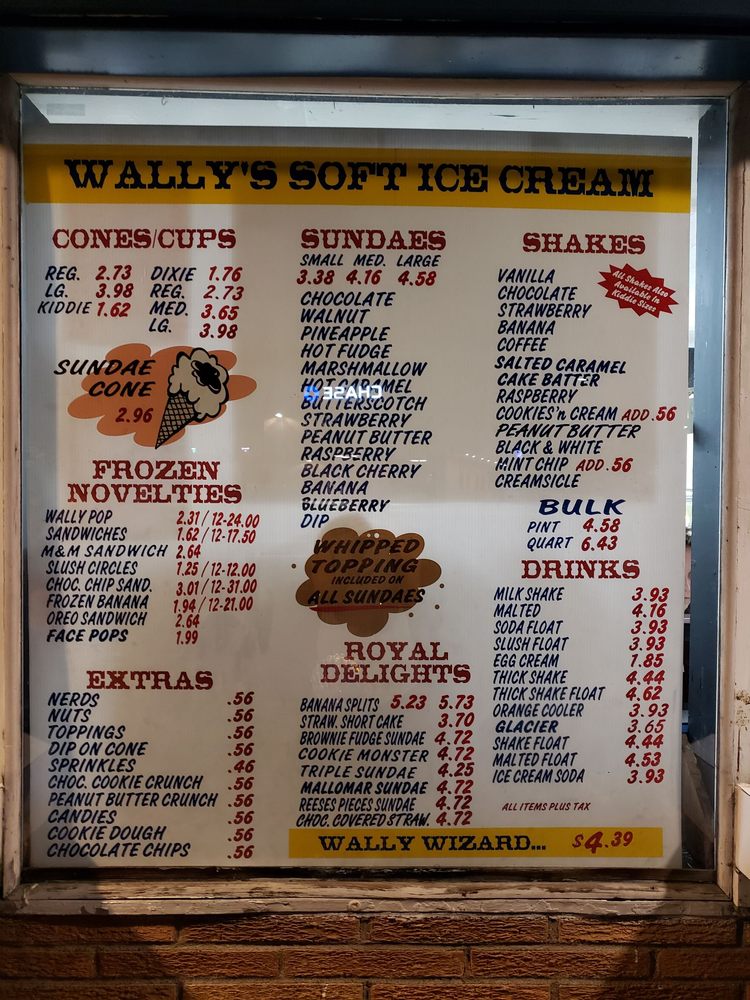 WALLY'S SOFT ICE CREAM
CONES/CUPS
REG. 2.73 DIXIE 1.76
LG. 3.98 REG. 2.73
KIDDIE 1.62 MED. 3.65
LG. 3.98
SUNDAE
CONE
2.96
FROZEN
NOVELTIES
WALLY POP 2.31 / 12-24.00
SANDWICHES 1.62 / 12-17.50
M&M SANDWICH 2.64
SLUSH CIRCLES 1.25 / 12-12.00
CHOC. CHIP SAND. 3.01 / 12-31.00
FROZEN BANANA 1.94 / 12-21.00
OREO SANDWICH 2.64
FACE POPS 1.99
EXTRAS
NERDS .56
NUTS .56
TOPPINGS .56
DIP ON CONE .56
SPRINKLES .46
CHOC. COOKIE CRUNCH .56
PEANUT BUTTER CRUNCH .56
CANDIES .56
COOKIE DOUGH .56
CHOCOLATE CHIPS .56
SUNDAES
SMALL MED. LARGE
3.38 4.16 4.58
CHOCOLATE
WALNUT
PINEAPPLE
HOT FUDGE
MARSHMALLOW
HOT CARAMEL
BUTTERSCOTCH
STRAWBERRY
PEANUT BUTTER
RASPBERRY
BLACK CHERRY
BANANA
BLUEBERRY
DIP
WHIPPED
TOPPING
INCLUDED ON
ALL SUNDAES
ROYAL
DELIGHTS
BANANA SPLITS 5.23 5.73
STRAW. SHORT CAKE 3.70
BROWNIE FUDGE SUNDAE 4.72
COOKIE MONSTER 4.72
TRIPLE SUNDAE 4.25
MALLOMAR SUNDAE 4.72
REESES PIECES SUNDAE 4.72
CHOC. COVERED STRAW. 4.72
SHAKES
All Shakes Also
Available In
Kiddie Sizes
VANILLA
CHOCOLATE
STRAWBERRY
BANANA
COFFEE
SALTED CARAMEL
CAKE BATTER
RASPBERRY
COOKIES 'n CREAM ADD .56
PEANUT BUTTER
BLACK & WHITE
MINT CHIP ADD .56
CREAMSICLE
BULK
PINT 4.58
QUART 6.43
DRINKS
MILK SHAKE 3.93
MALTED 4.16
SODA FLOAT 3.93
SLUSH FLOAT 3.93
EGG CREAM 1.85
THICK SHAKE 4.44
THICK SHAKE FLOAT 4.62
ORANGE COOLER 3.93
GLACIER 3.65
SHAKE FLOAT 4.44
MALTED FLOAT 4.53
ICE CREAM SODA 3.93
ALL ITEMS PLUS TAX
WALLY WIZARD... $4.39
CHASE